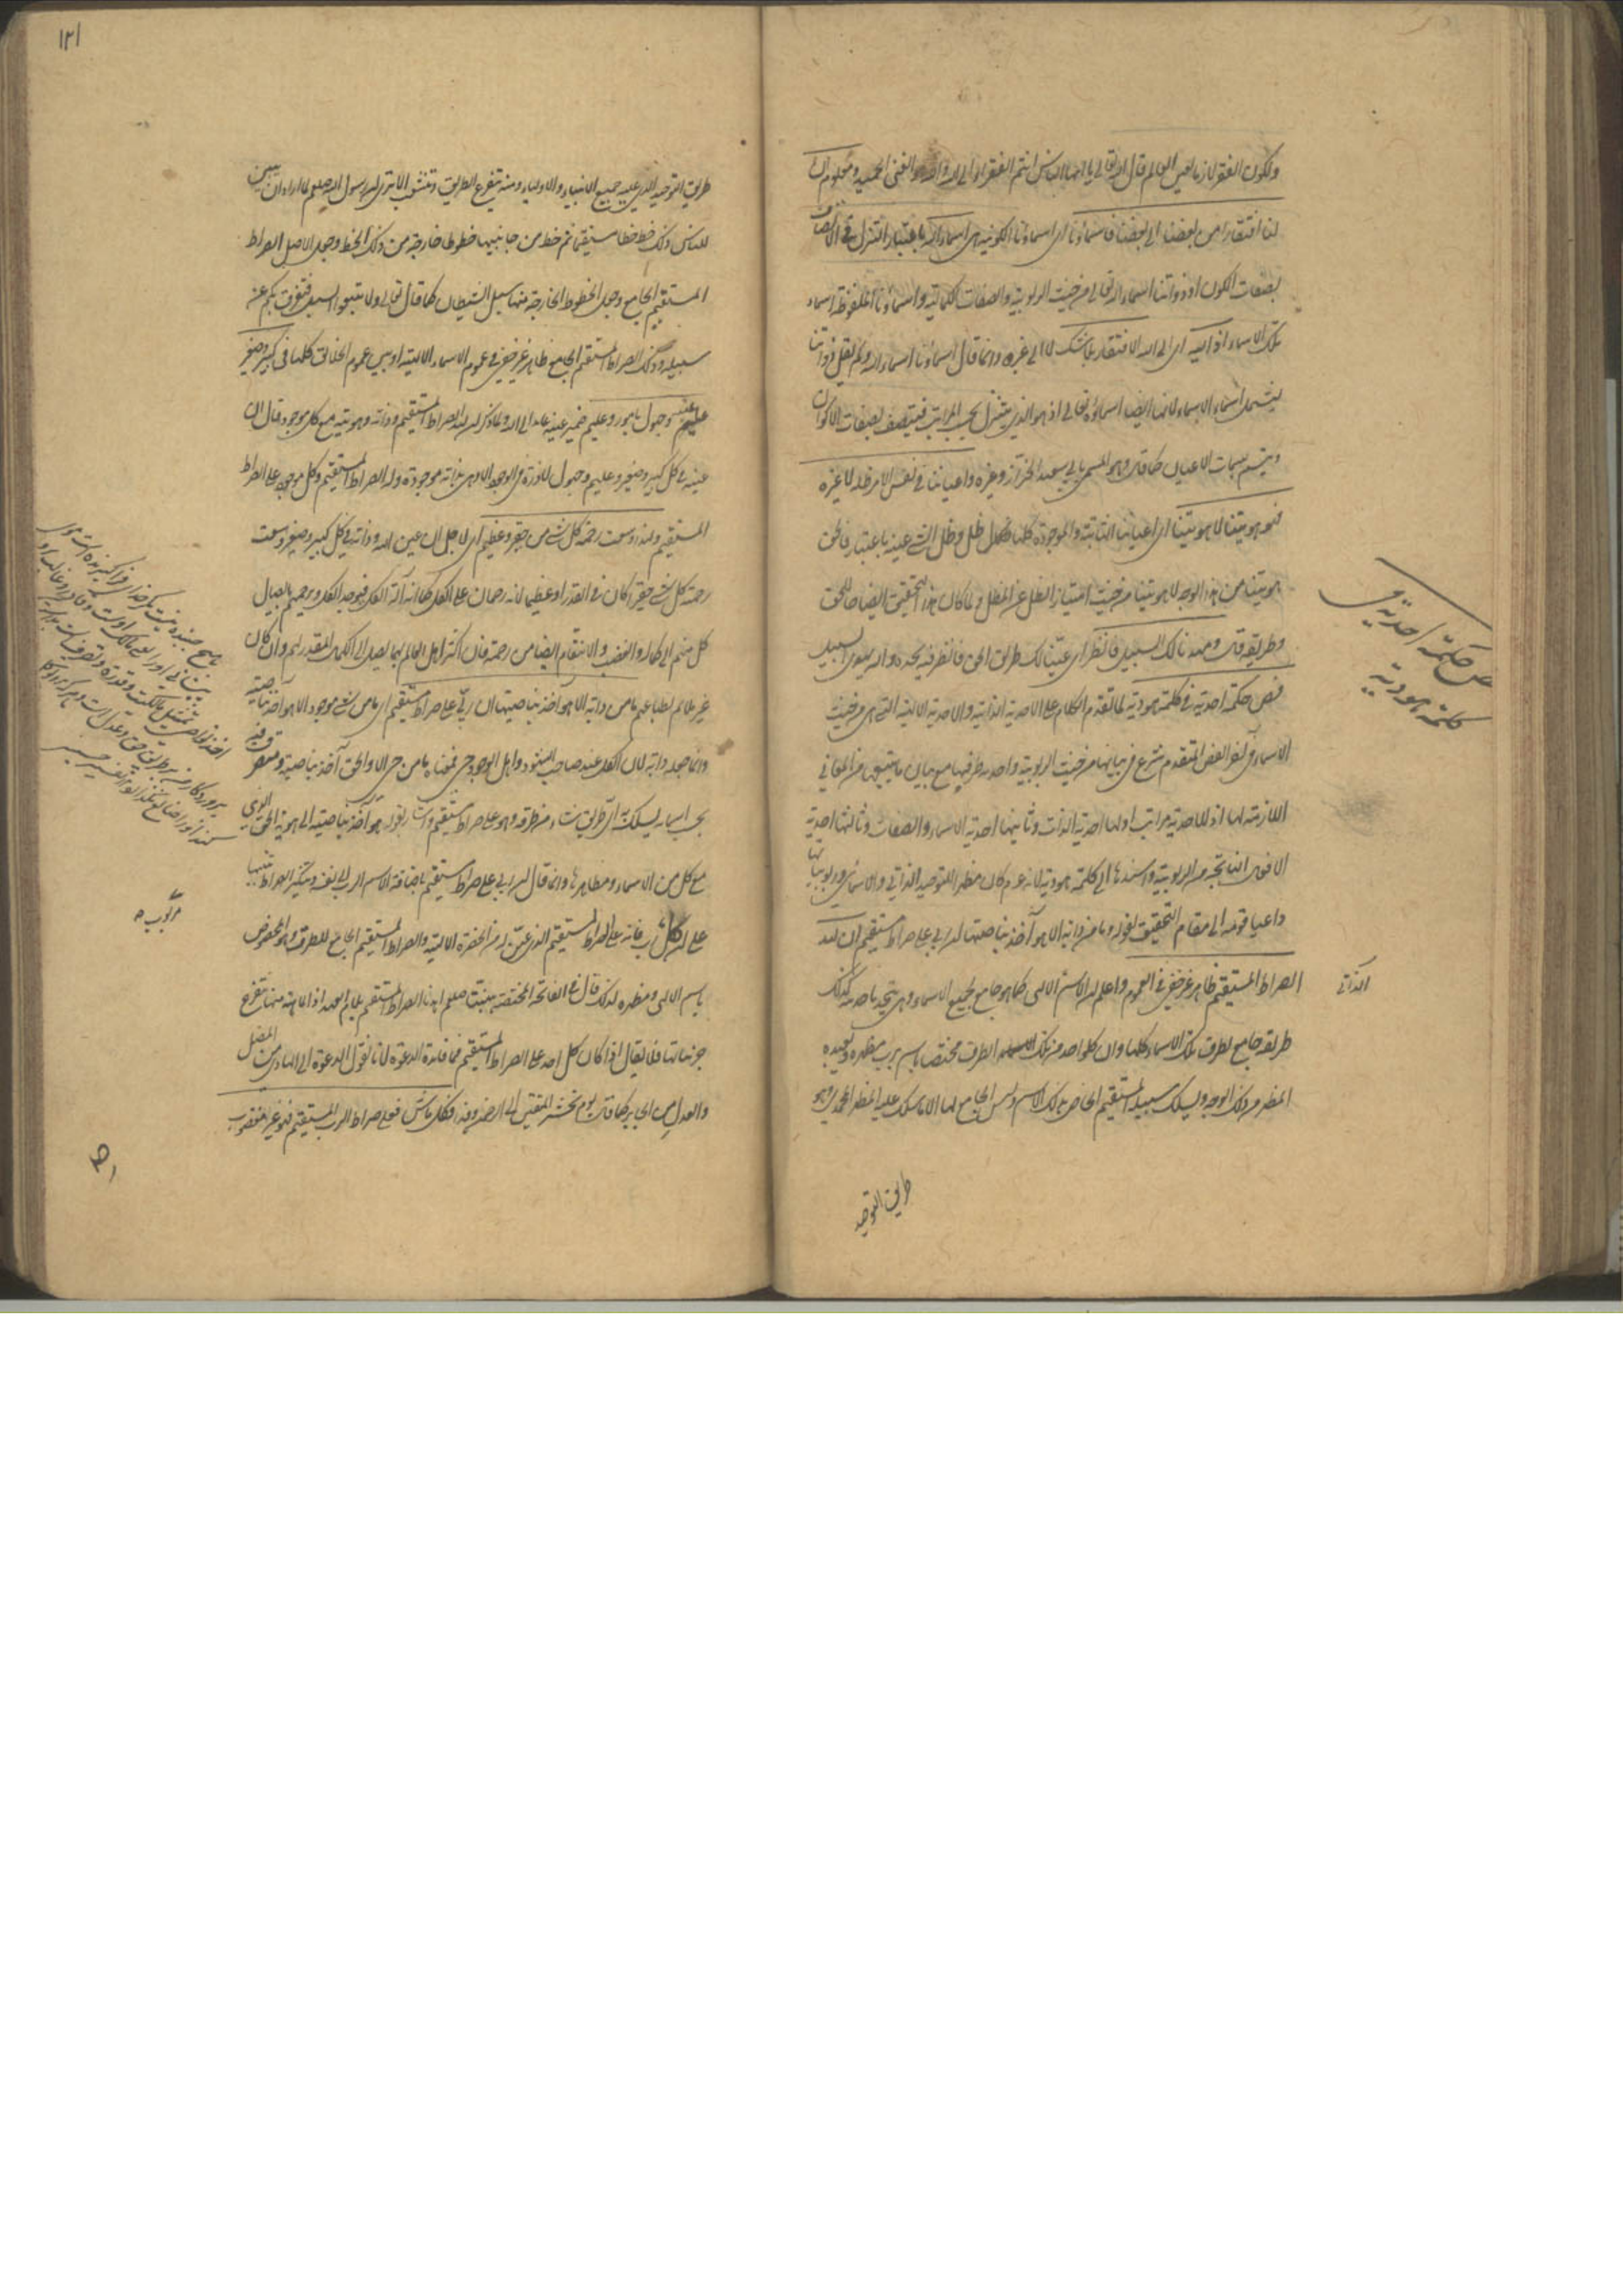 ولكون الفقر لازما لعين العالم قال الله تعالى يا ايها الناس انتم الفقراء الى الله والله هو الغنى الحميد ومعلوم ان
لنا افتقارا من بعضنا الى بعضنا فاسماؤنا اى اسماؤنا الكونية هى اسماء الله باعتبار التنزل والاتصاف
بصفات الكون او ذواتنا اسماء الله تعالى من حيث الربوبية والصفات الكمالية واسماؤنا الملفوظة اسماء
تلك الاسماء اذ اليه اى الى الله الافتقار بلا شك لا الى غيره وانما قال اسماؤنا اسماء الله ولم يقل ذواتنا
ليشمل اسماء الاسماء لانها ايضا اسماؤه تعالى اذ هو الذى يتنزل بحسب المراتب فيتصف بصفات الاكوان
ويتسم بسمات الاعيان كما قال وهو المسمى بابى سعيد الخراز وغيره واعياننا فى نفس الامر ظله لا غيره
فهو هويتنا لا هويتنا اى اعياننا الثابتة والموجودة كلها ظل وظل الشئ عينه باعتبار فالحق
هويتنا من هذا الوجه لا هويتنا من حيث امتياز الظل عن المظل ولما كان هذا التحقيق ايضاحا للحق
وطريقه قال وقد مهدنا لك السبيل فانظر اى عينا لك طريق الحق فانظر فيه تجده والله يهدى السبيل
فص حكمة احدية فى كلمة هودية لما تقدم الكلام على الاحدية الذاتية والاحدية الالهية التى هى من حيث
الاسماء فى آخر الفص المتقدم شرع فى بيانها من حيث الربوبية واحدية طرقها مع بيان ما يتبعها من المعانى
اللازمة لها اذ للاحدية مراتب اولها احدية الذات وثانيها احدية الاسماء والصفات وثالثها احدية
الافعال الناتجة من الربوبية واسندها الى كلمة هودية لانه عم كان مظهرا للتوحيد الذاتى والاسمائى وربوبيتها
داعيا قومه الى مقام التحقيق لقوله وما من دابة الا هو آخذ بناصيتها ان ربى على صراط مستقيم ان لله
الصراط المستقيم ظاهر غير خفى فى العموم واعلم ان الاسم الالهى كما هو جامع لجميع الاسماء وهى تتحد باحديته كذلك
طريقه جامع لطرق تلك الاسماء كلها وان كل واحد من تلك الطرق مختص باسم يرب مظهره ويعبده
المظهر من ذلك الوجه ويسلك سبيله المستقيم الخاص بذلك الاسم وليس الجامع لها الا ما سلك عليه المظهر المحمدى وهو
الذاتى
حكمة احدية فى
كلمة هودية
طريق التوحيد
١٢١
طريق التوحيد الذى عليه جميع الانبياء والاولياء ومنه تتفرع الطرق وتتشعب الا ترى ان رسول الله صلعم لما اراد ان يبين
للناس ذلك خط خطا مستقيما ثم خط من جانبيها خطوطا خارجة من ذلك الخط وجعل الاصل الصراط
المستقيم الجامع وجعل الخطوط الخارجة منها سبل الشيطان كما قال تعالى ولا تتبعوا السبل فتفرق بكم عن
سبيله وذلك الصراط المستقيم الجامع ظاهر غير خفى فى عموم الاسماء الالهية او بين عموم الخلائق كلها فى كبير وصغير
عينه وجهول بامور وعليم ضمير عينه عائد الى الله ولما ذكر ان لله الصراط المستقيم وذاته وهويته مع كل موجود قال ان
عينه فى كل كبير وصغير وعليم وجهول لا ذرة فى الوجود الا وهى بذاته موجودة وله الصراط المستقيم وكل موجود على الصراط
المستقيم ولهذا وسعت رحمته كل شئ من حقير وعظيم اى لاجل ان عين الله وذاته فى كل كبير وصغير وسعت
رحمته كل شئ حقيرا كان فى القدر او عظيما لانه رحمان على الكل كما انه اله الكل فيوجد الكل ويرحمهم بايصال
كل منهم الى كماله والغضب والانتقام ايضا من رحمته فان اكثر اهل العالم بهما يصل الى الكمال المقدر لهم وان كان
غير ملائم لطباعهم ما من دابة الا هو آخذ بناصيتها ان ربى على صراط مستقيم اى ما من شئ موجود الا هو آخذ بناصيته
وانما جعله دابة لان الكل عند صاحب الشهود واهل الوجود حى فمعناه ما من حى الا والحق آخذ بناصيته ومتصرف فيه
بحسب اسمائه يسلك به اى طريق شاء من طرقه وهو على صراط مستقيم واشار بقوله هو آخذ بناصيته الى هوية الحق الذى
مع كل من الاسماء ومظاهرها وانما قال ان ربى على صراط مستقيم باضافة الاسم الرب الى نفسه وتنكير الصراط تنبيها
على ان كل رب فانه على الصراط المستقيم الذى عين له من الحضرة الالهية والصراط المستقيم الجامع للطرق هو المخصوص
باسم الالهى ومظهره لذلك قال فى الفاتحة المختصة بنبينا صلعم اهدنا الصراط المستقيم بلام العهد اذ الماهية منها تتفرع
جزئياتها فلا يقال اذا كان كل احد على الصراط المستقيم فما فائدة الدعوة لانا نقول الدعوة الى الهادى من المضل
والعدل من الجابر كما قال يوم نحشر المتقين الى الرحمن وفدا فكل ماش فعلى صراط الرب المستقيم فهو غير مغضوب